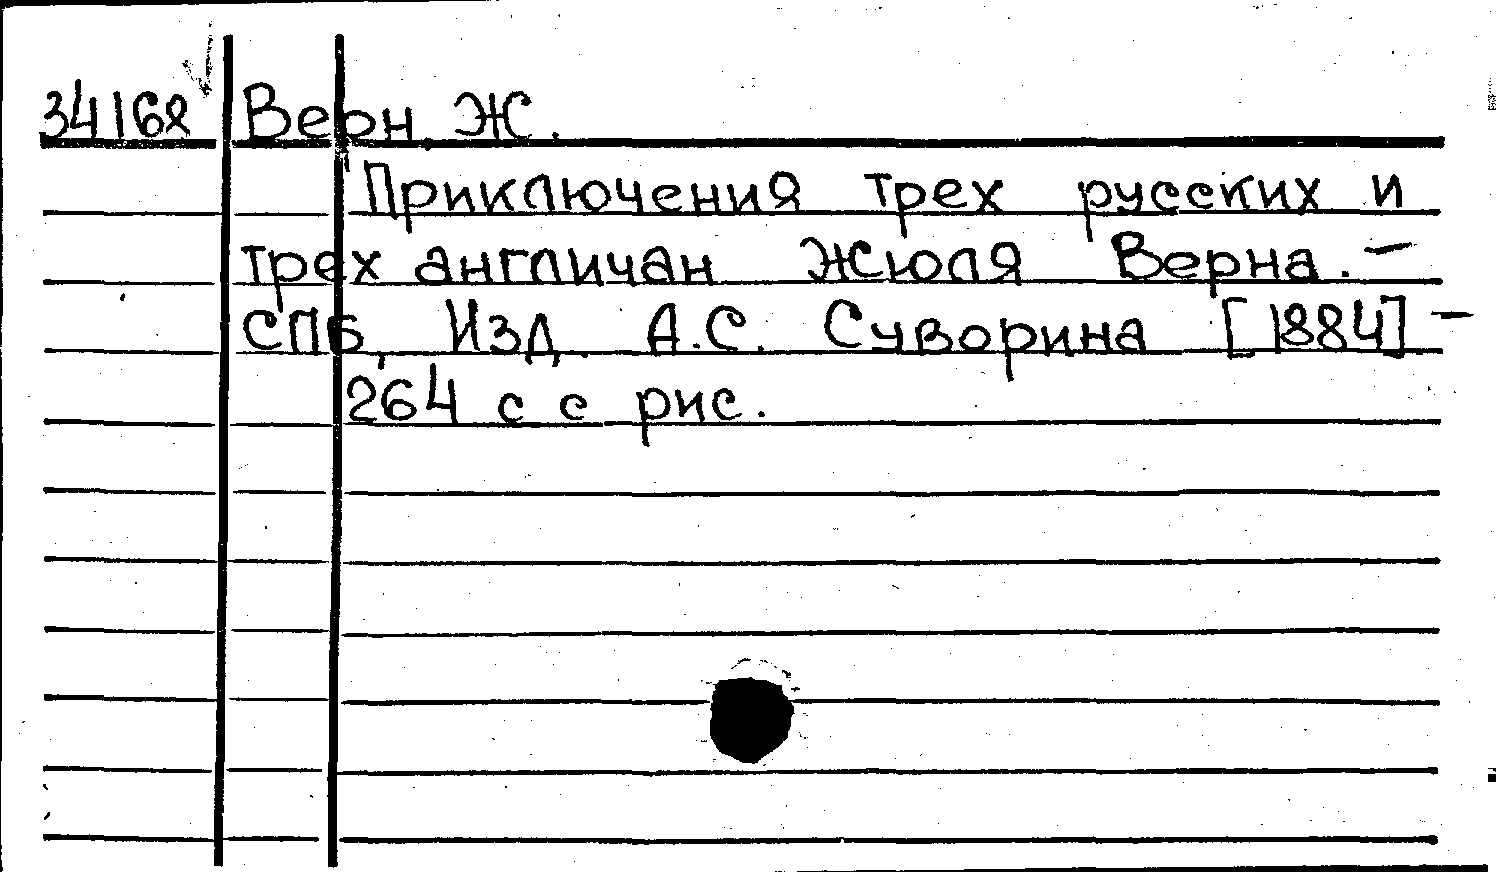 34168 Верн, Ж.
Приключения трех русских и
трех англичан Жюля Верна. –
СПБ, Изд. А.С. Суворина [1884] –
264 с с рис.